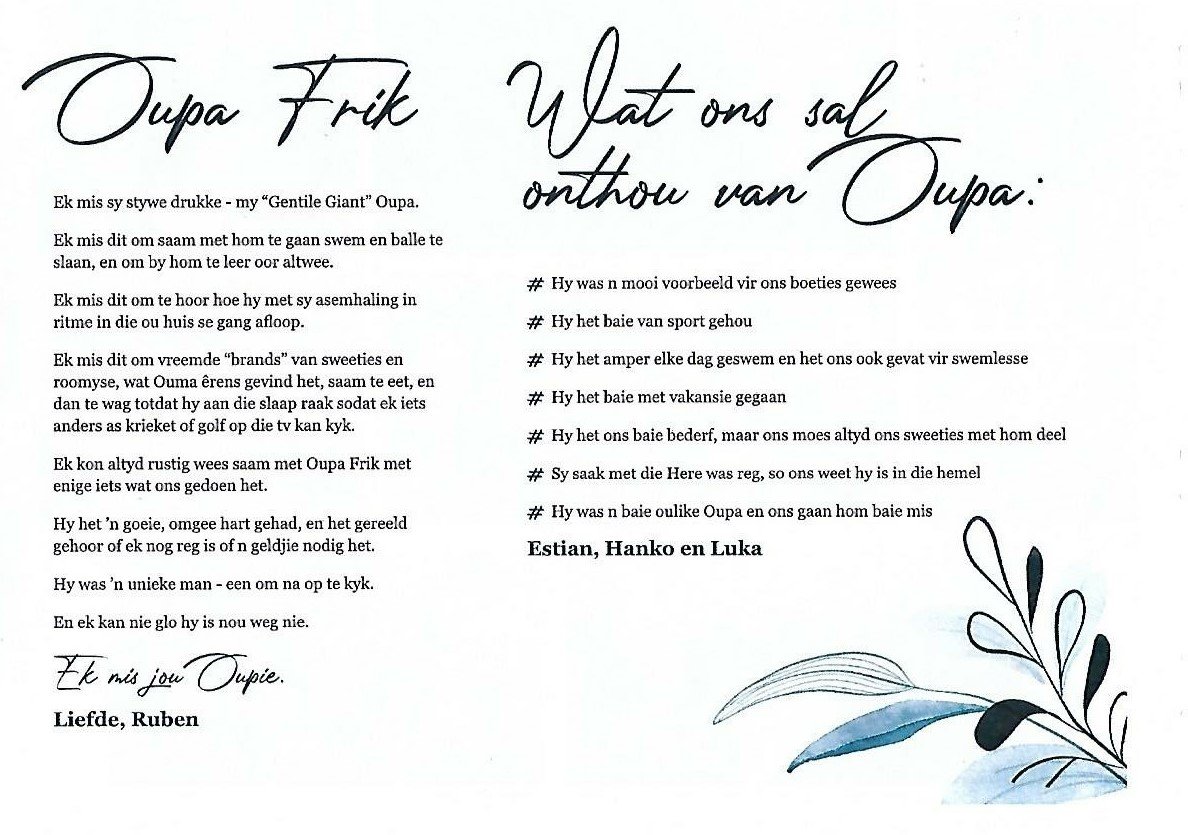 Oupa Frik
Ek mis sy stywe drukke - my “Gentile Giant” Oupa.
Ek mis dit om saam met hom te gaan swem en balle te
slaan, en om by hom te leer oor altwee.
Ek mis dit om te hoor hoe hy met sy asemhaling in
ritme in die ou huis se gang afloop.
Ek mis dit om vreemde “brands” van sweeties en
roomyse, wat Ouma êrens gevind het, saam te eet, en
dan te wag totdat hy aan die slaap raak sodat ek iets
anders as krieket of golf op die tv kan kyk.
Ek kon altyd rustig wees saam met Oupa Frik met
enige iets wat ons gedoen het.
Hy het ’n goeie, omgee hart gehad, en het gereeld
gehoor of ek nog reg is of n geldjie nodig het.
Hy was ’n unieke man - een om na op te kyk.
En ek kan nie glo hy is nou weg nie.
Ek mis jou Oupie.
Liefde, Ruben
Wat ons sal
onthou van Oupa:
# Hy was n mooi voorbeeld vir ons boeties gewees
# Hy het baie van sport gehou
# Hy het amper elke dag geswem en het ons ook gevat vir swemlesse
# Hy het baie met vakansie gegaan
# Hy het ons baie bederf, maar ons moes altyd ons sweeties met hom deel
# Sy saak met die Here was reg, so ons weet hy is in die hemel
# Hy was n baie oulike Oupa en ons gaan hom baie mis
Estian, Hanko en Luka